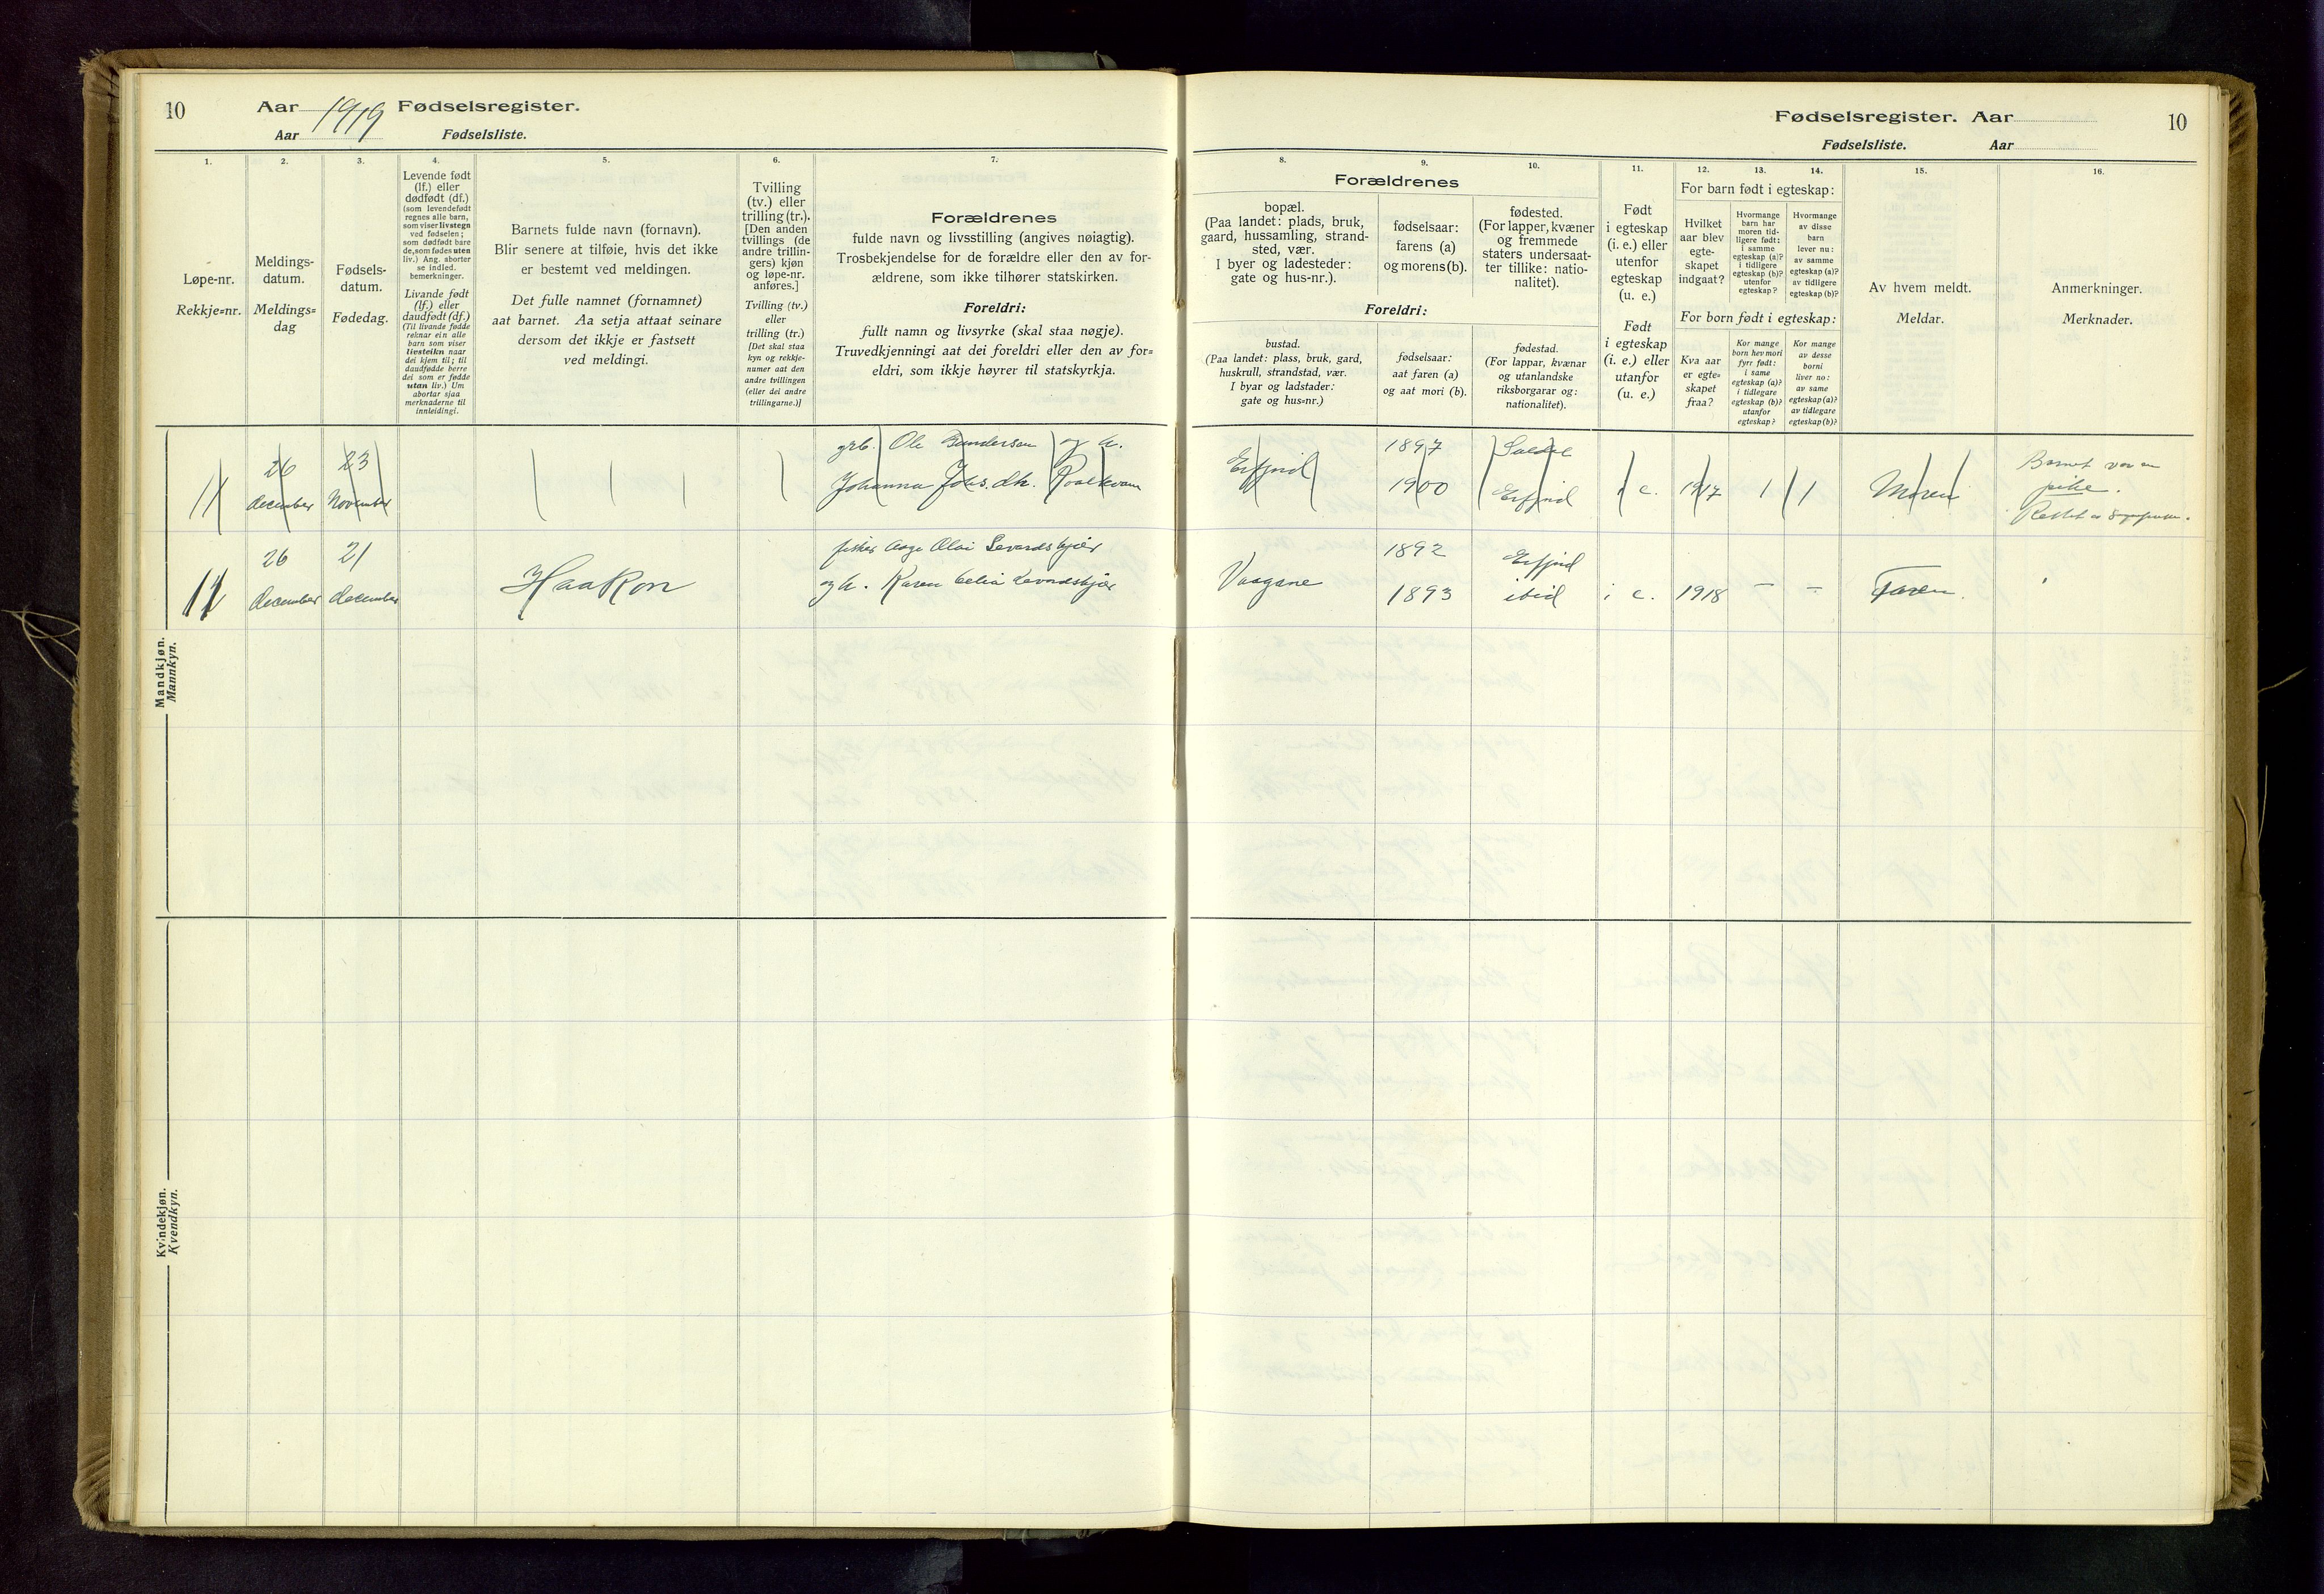 10
Aar 1919 Fødselsregister.
Aar Fødselsliste.
1.
2.
3.
4.
5.
6.
7.
Løpe-nr.
Rekkje=nr.
Meldings-
datum.
Meldings=
dag
Fødsels-
datum.
Fødedag.
Levende født
(lf.) eller
dødfødt (df.)
(som levendefødt
regnes alle barn,
som viser livstegn
ved fødselen;
som dødfødt bare
de, som fødes uten
liv.) Ang. aborter
se indled.
bemerkninger.
Livande født
(lf.) eller
daudfødt (df.)
(Til livande fødde
reknar ein alle
barn som viser
livsteikn naar
dei kjem til; til
daudfødde berre
dei som er fødde
utan liv.) Um
abortar sjaa
merknaderne til
innleidingi.
Barnets fulde navn (fornavn).
Blir senere at tilføie, hvis det ikke
er bestemt ved meldingen.
Det fulle namnet (fornamnet)
aat barnet. Aa setja attaat seinare
dersom det ikkje er fastsett
ved meldingi.
Tvilling
(tv.) eller
trilling (tr.).
[Den anden
tvillings (de
andre trillin-
gers) kjøn
og løpe-nr.
anføres.]
Tvilling (tv.)
eller
trilling (tr.)
[Det skal staa
kyn og rekkje-
numer aat den
andre tvillingen
(eller dei andre
trillingarne.)]
Forældrenes
fulde navn og livsstilling (angives nøiagtig).
Trosbekjendelse for de forældre eller den av for-
ældrene, som ikke tilhører statskirken.
Foreldri:
fullt namn og livsyrke (skal staa nøgje).
Truvedkjenningi aat dei foreldri eller den av for=
eldri, som ikkje høyrer til statskyrkja.
Fødselsregister. Aar
10
Fødselsliste. Aar
8.
9.
10.
11.
12.
13.
14.
15.
16.
Forældrenes
bopæl.
(Paa landet: plads, bruk,
gaard, hussamling, strand-
sted, vær.
I byer og ladesteder:
gate og hus-nr.).
fødselsaar:
farens (a)
og morens (b).
fødested.
(For lapper, kvæner
og fremmede
staters undersaat-
ter tillike: natio-
nalitet).
Foreldri:
bustad.
(Paa landet: plass, bruk, gard,
huskrull, strandstad, vær.
I byar og ladstader:
gate og hus=nr.)
fødselsaar:
aat faren (a)
og aat mori (b).
fødestad.
(For lappar, kvænar
og utanlandske
riksborgarar og:
nationalitet).
Født
i egteskap
(i. e.) eller
utenfor
egteskap
(u. e.)
Født
i egteskap
(i. e.) eller
utanfor
(u. e.)
For barn født i egteskap:
Hvilket
aar blev
egte-
skapet
indgaat?
Hvormange
barn har
moren tid-
ligere født:
i samme
egteskap (a)?
i tidligere
egteskap (b)?
utenfor
egteskap?
Hvormange
av disse
barn
lever nu:
av samme
egteskap (a)?
av tidligere
egteskap (b)?
For born født i egteskap:
Kva aar
er egte=
skapet
fraa?
Kor mange
born hev mori
fyrr født:
i same
egteskap (a)?
i tidlegare
egteskap (b)?
utanfor
egteskap?
Kor mange
av desse
borni
liver no:
av same
egteskap (a)?
av tidlegare
egteskap (b)?
Av hvem meldt.
Meldar.
Anmerkninger.
Merknader.
11 26 december 23 November
Ole Gundersen og h.
Johanna Johs. dh.
Erfjord 1897 1900 Erfjord i e. 1917 1 1 Moren
Barnet var en
pike.
11 26 december 21 december Haakon
fisker Aage Olai Levardskjær
og h. Karen Celia Levardskjær
Vaagane 1892 Erfjord
1893 ibid i e. 1918 - - Faren.
Mandkjøn.
Mannkyn.
Kvindekjøn.
Kvendkyn.